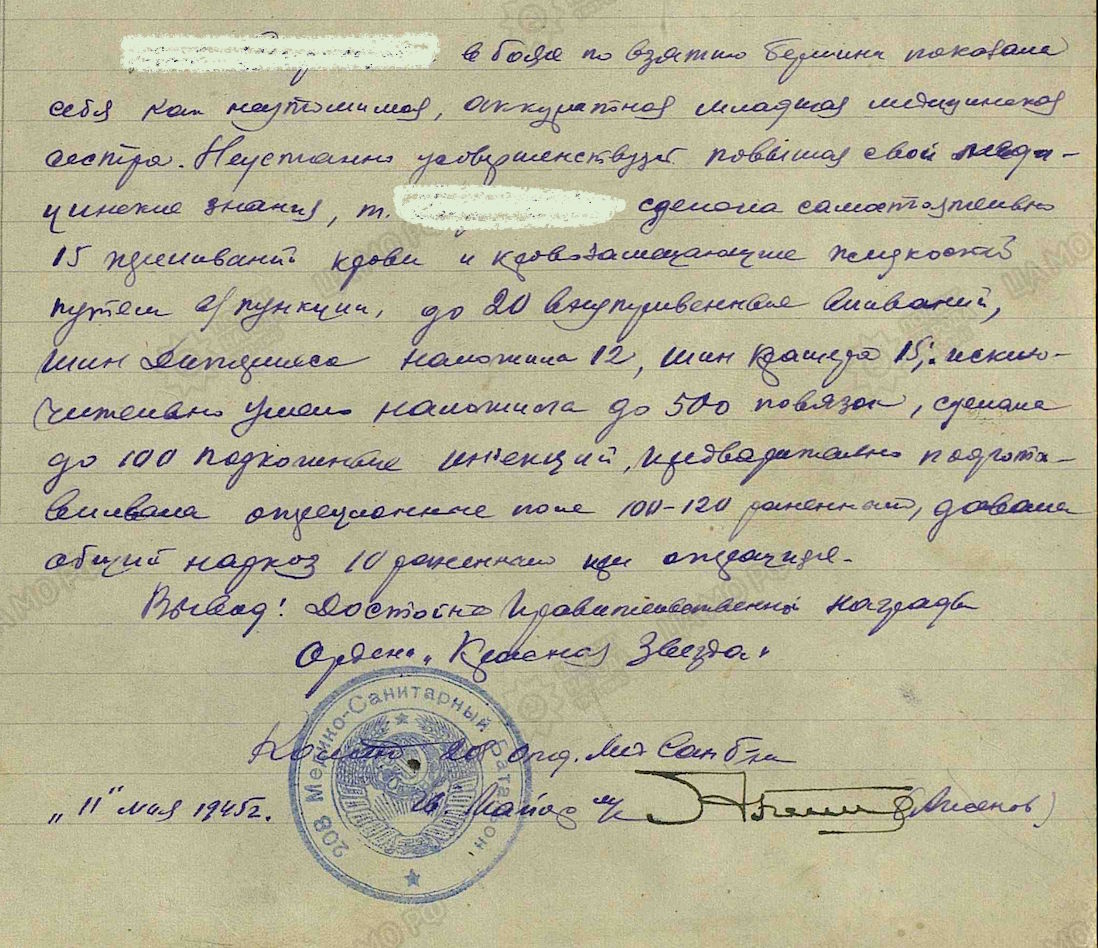 в боях по взятию Берлина показала
себя как неутомимая, аккуратная младшая медицинская
сестра. Неустанно усовершенствуя повышая свои меди-
цинские знания, т. сделала самостоятельно
15 переливаний крови и кровозамещающие жидкостей
путем в/пункции, до 20 внутривенные вливаний,
шин Дитерихса наложила 12, шин Крамера 15, исклю-
чительно умело наложила до 500 повязок, сделала
до 100 подкожные инъекций, предварительно подгота-
вливала операционные поле 100-120 раненным, давала
общий наркоз 10 раненным при операциях.
Вывод: Достойна Правительственной награды
Орден „Красная Звезда"
208 Медико-Санитарный Батальон
208 отд. Мед Сан Б-на
„11" мая 1945г. гв. Майор м/с
ЦАМО РФ